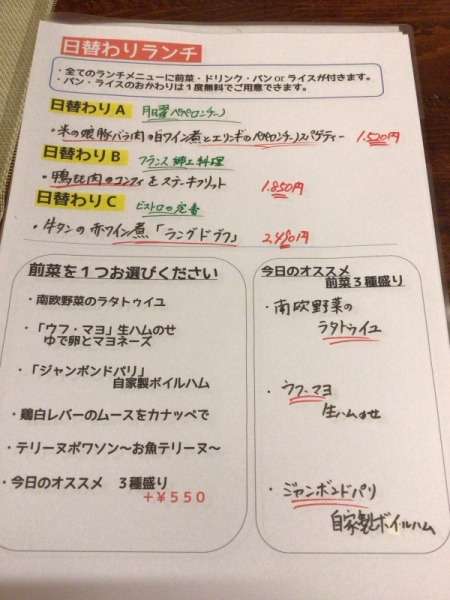 日替わりランチ
・全てのランチメニューに前菜・ドリンク・パン or ライスが付きます。
・パン・ライスのおかわりは１度無料でご用意できます。
日替わり A 月曜ペペロンチーノ
・米の娘豚バラ肉の白ワイン煮とエリンギのペペロンチーノスパゲティー 1.520円
日替わり B フランス郷土料理
・鴨モモ肉のコンフィ&ステークフリット 1.850円
日替わり C ビストロの定番
・牛タンの赤ワイン煮「ラングドブフ」 2.480円
前菜を１つお選びください
・南欧野菜のラタトゥイユ
・「ウフ・マヨ」生ハムのせ
ゆで卵とマヨネーズ
・「ジャンボンドパリ」
自家製ボイルハム
・鶏白レバーのムースをカナッペで
・テリーヌポワソン～お魚テリーヌ～
・今日のオススメ ３種盛り
＋￥５５０
今日のオススメ
前菜３種盛り
・南欧野菜の
ラタトゥイユ
・ウフ・マヨ
生ハムのせ
・ジャンボンドパリ
自家製ボイルハム